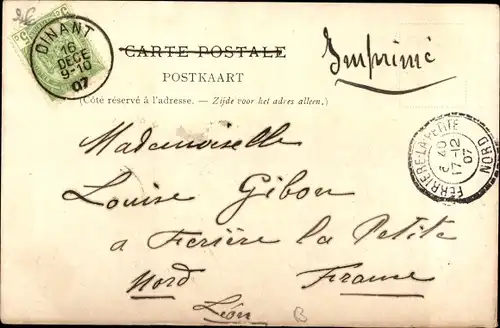 DINANT
16
DECE
9-10
07
CARTE POSTALE
Imprimé
POSTKAART
(Côté réservé à l'adresse. — Zijde voor het adres alleen.)
FERRIERE-LA-PETITE
40
17-12
07
NORD
Mademoiselle
Louise Gibon
a Ferière la Petite
Nord France
Léon
B